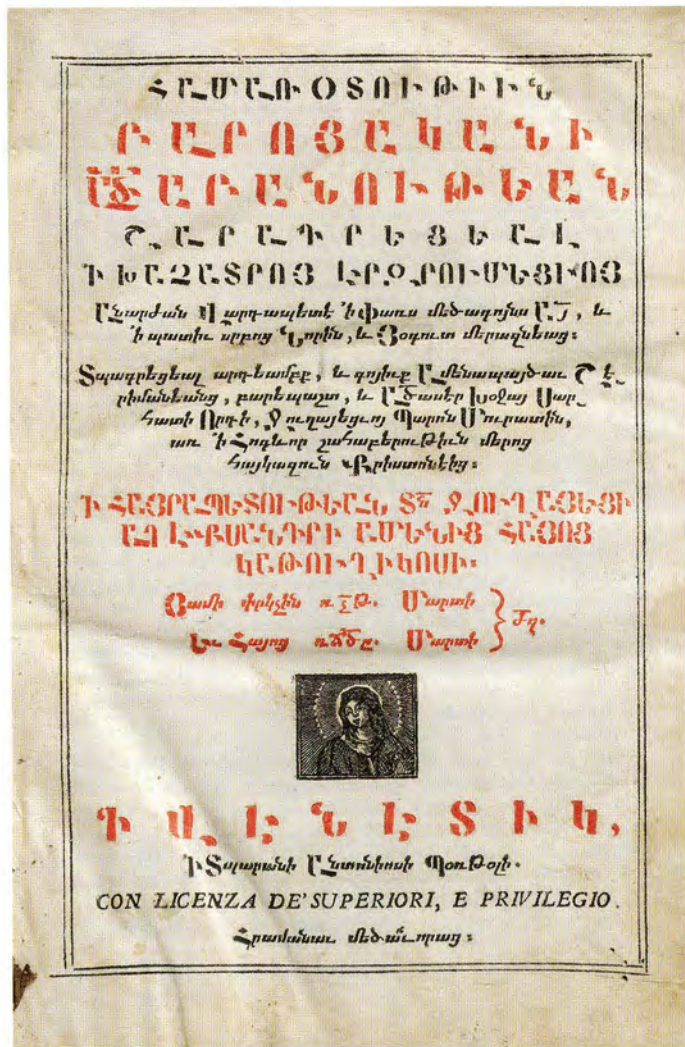 ՀԱՄԱՌՕՏՈՒԹԻՒՆ
ԲԱՐՈՅԱԿԱՆԻ
ԱՍՏՎԱԾԱԲԱՆՈՒԹԵԱՆ
ՇԱՐԱԴՐԵՑԵԱԼ
Ի ԽԱՉԱՏՐՈՅ ԷՐԶՐՈՒՄԵՑՒՈՅ
Անարժան Վարդապետէ ՚ի փառս մեծագոյնս ԱՅ, և
՚ի պատիւ սրբոց Նորին, և Յօգուտ մերազնեաց։
Տպագրեցեալ արդեամբք, և գոյիւք Ամենապայծառ Շէ֊
րիմանեանց, բարեպաշտ, և Ածասէր Խօջայ Սար֊
հատի Որդի, Ջուղայեցւոյ Պարոն Մուրատին,
առ ՚ի Հոգևոր շահաբերութիւն մերոց
հայկազուն Քրիստոնէից։
Ի ՀԱՅՐԱՊԵՏՈՒԹԵԱՆ ՏՆ ՋՈՒՂԱՅԵՑԻ
ԱՂԷՔՍԱՆԴՐԻ ԱՄԵՆԻՑ ՀԱՅՈՑ
ԿԱԹՈՒՂԻԿՈՍԻ։
Յամի փրկչին ռ՟չ՟թ. Մարտի
Եւ Հայոց ռ՟ճ՟ծ՟ը. Մարտի
ժ՟ղ.
Ի ՎԷՆԷՏԻԿ,
Ի Տպարանի Անտօնիոսի Պօռթօլի.
CON LICENZA DE' SUPERIORI, E PRIVILEGIO.
Հրամանաւ մեծաւորաց։